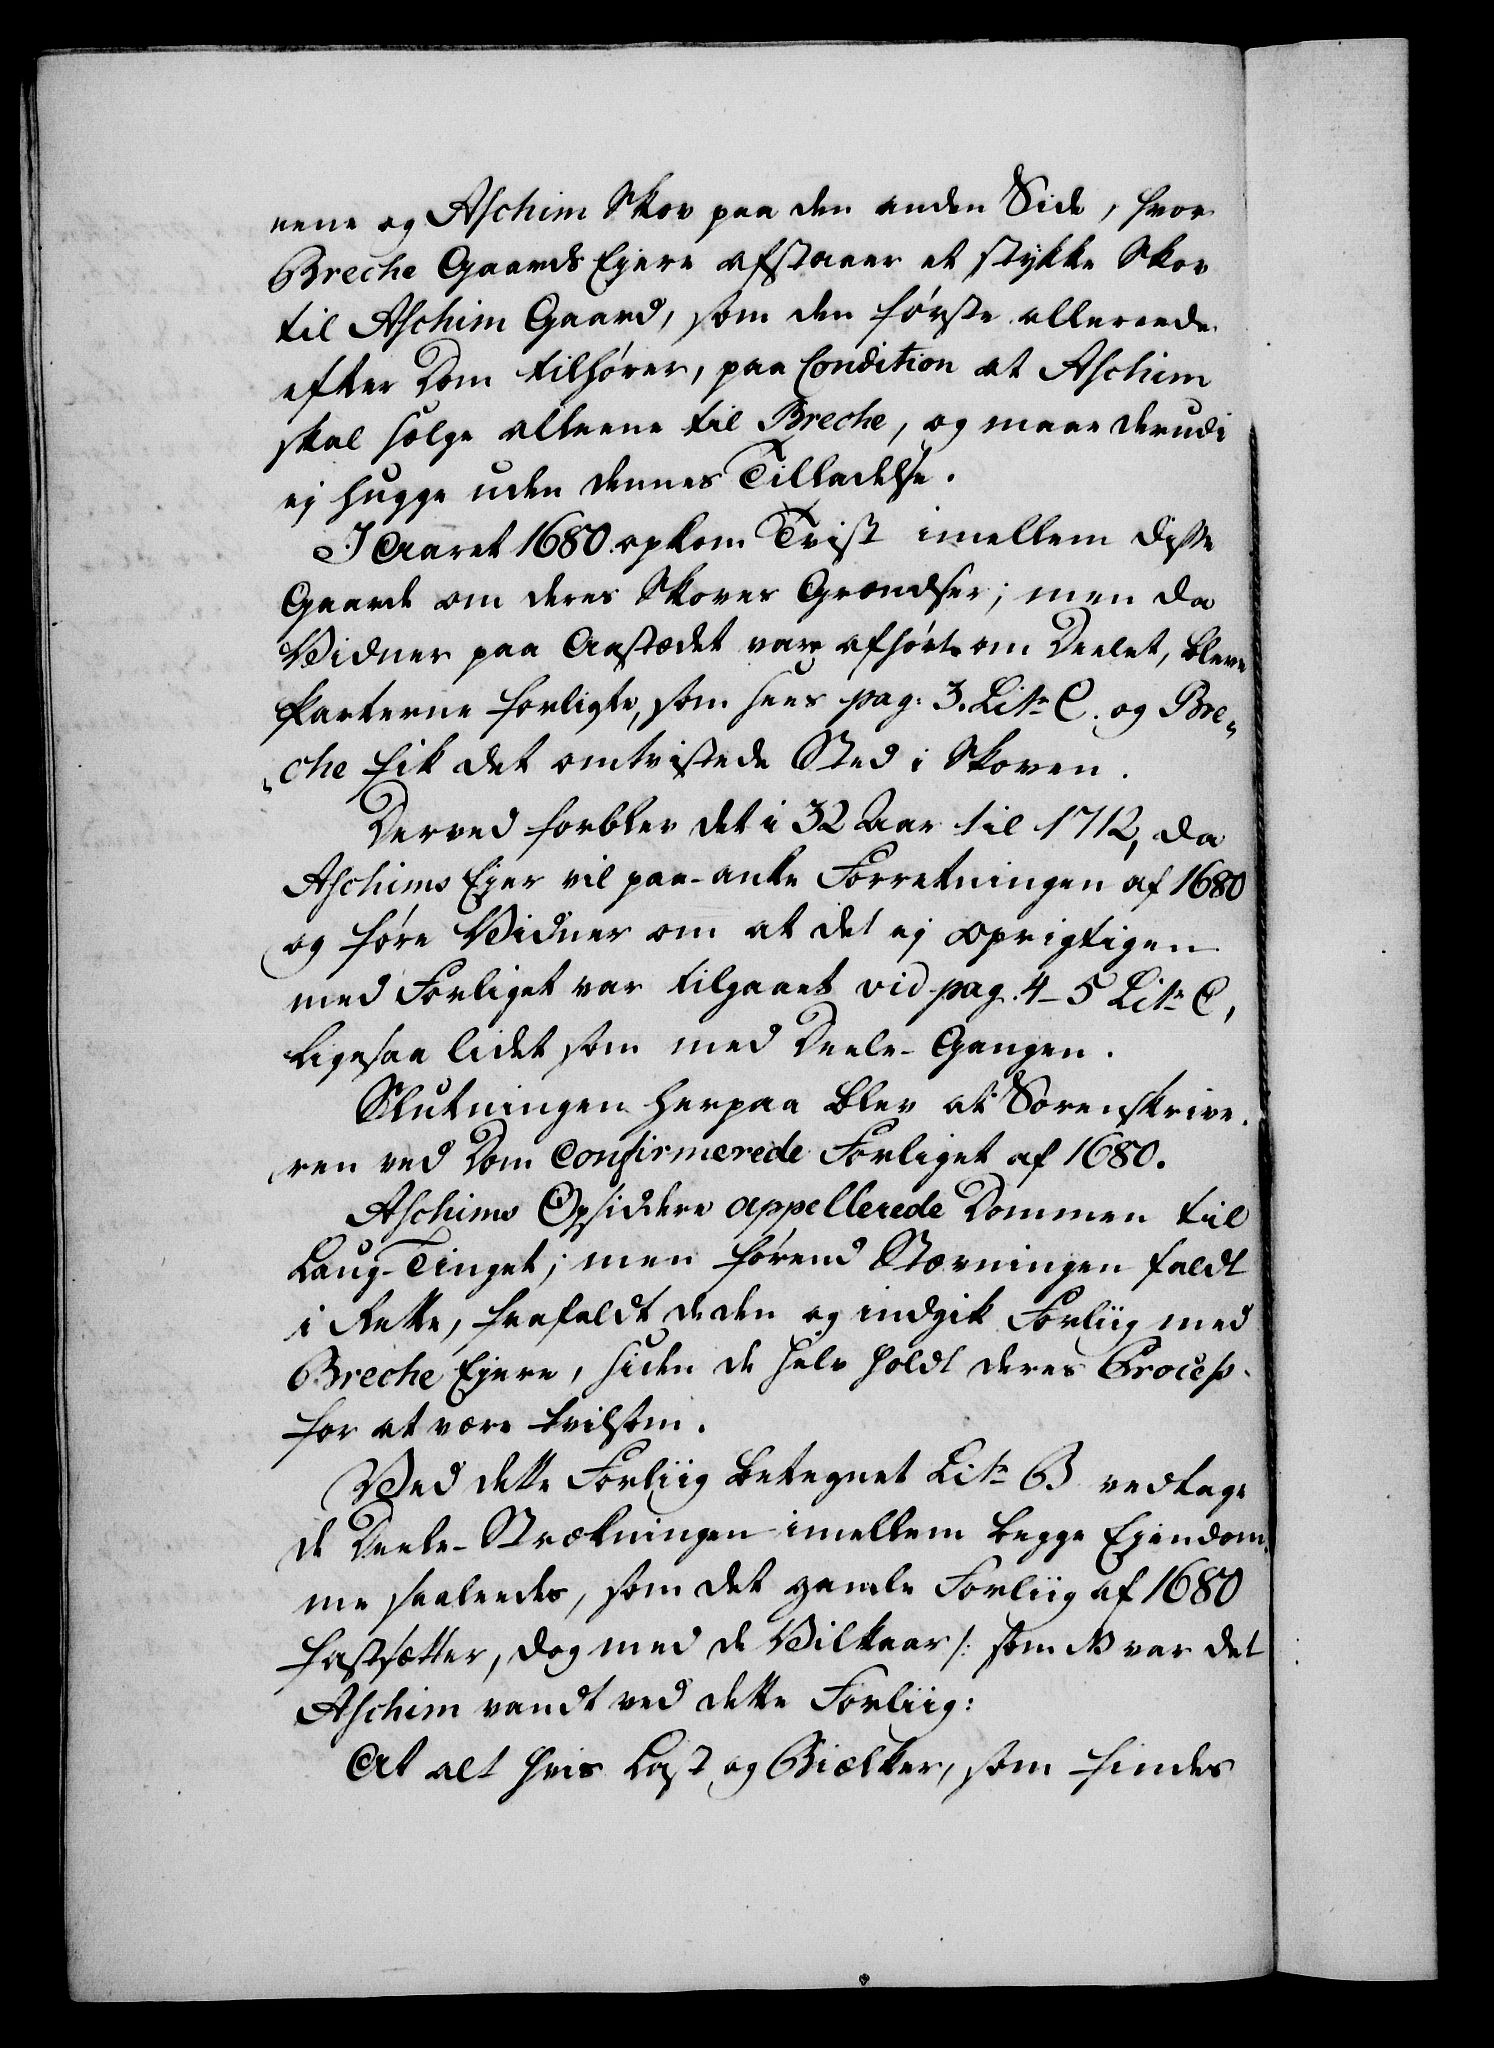 nene og Aschim Skov paa den anden Side, hvor
Breche Gaards Ejere afstaaer et stykke Skov
til Aschim Gaard, som den første allereede
efter Dom tilhører, paa Condition at Aschim
skal sælge alleene til Breche, og maae derudi
ej hugge uden dennes Tilladelse.
I Aaret 1680 opkom Tvist imellem disse
Gaarde om deres Skoves Grændser; men da
Vidner paa Aastædet vare afhørte om Deelet, bleve
Parterne forligte, som sees pag: 3. Litr C. og Bre„
„che fik det omtvistede Sted i Skoven.
Derved forblev det i 32 Aar til 1712, da
Aschims Ejer vil paa-anke Forretningen af 1680
og føre Vidner om at det ej oprigtigen
med Forliget var tilgaaet vid pag. 4-5 Litr C,
ligesaa lidet som med Deele-Gangen.
Slutningen herpaa blev at Sorenskrive-
ren ved Dom confirmerede Forliget af 1680.
Aschims Opsiddere appellerede Dommen til
Laug-Tinget; men førend Stævningen faldt
i Rette, frafaldt de den og indgik Forliig med
Breche Ejere, siden de selv holdt deres Process
for at være tvilsom.
Ved dette Forliig betegnet Litr B vedtage
de Deele-Strækningen imellem begge Ejendom-
me saaleedes, som det gamle Forliig af 1680
fastsætter, dog med de Vilkaar /: som NB var det
Aschim vandt ved dette Forliig:
At alt hvis Last og Bielker, som findes